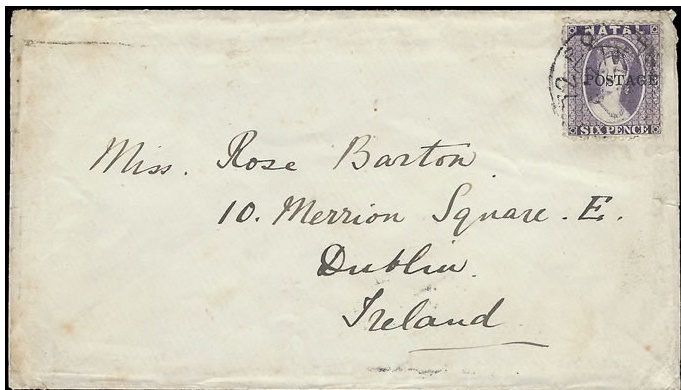 NATAL
POSTAGE
SIX PENCE
Miss. Rose Barton.
10. Merrion Square. E.
Dublin.
Ireland